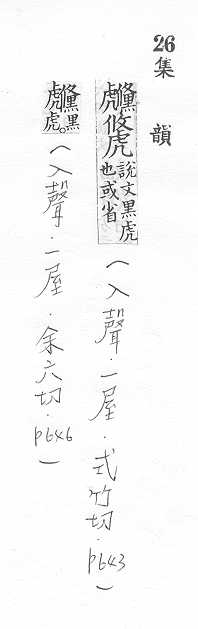 26集韻
虪 說文黑虎也或省(入聲.一屋.式竹切.p643)
虪黑虎。(入聲.一屋.余六切.p646)